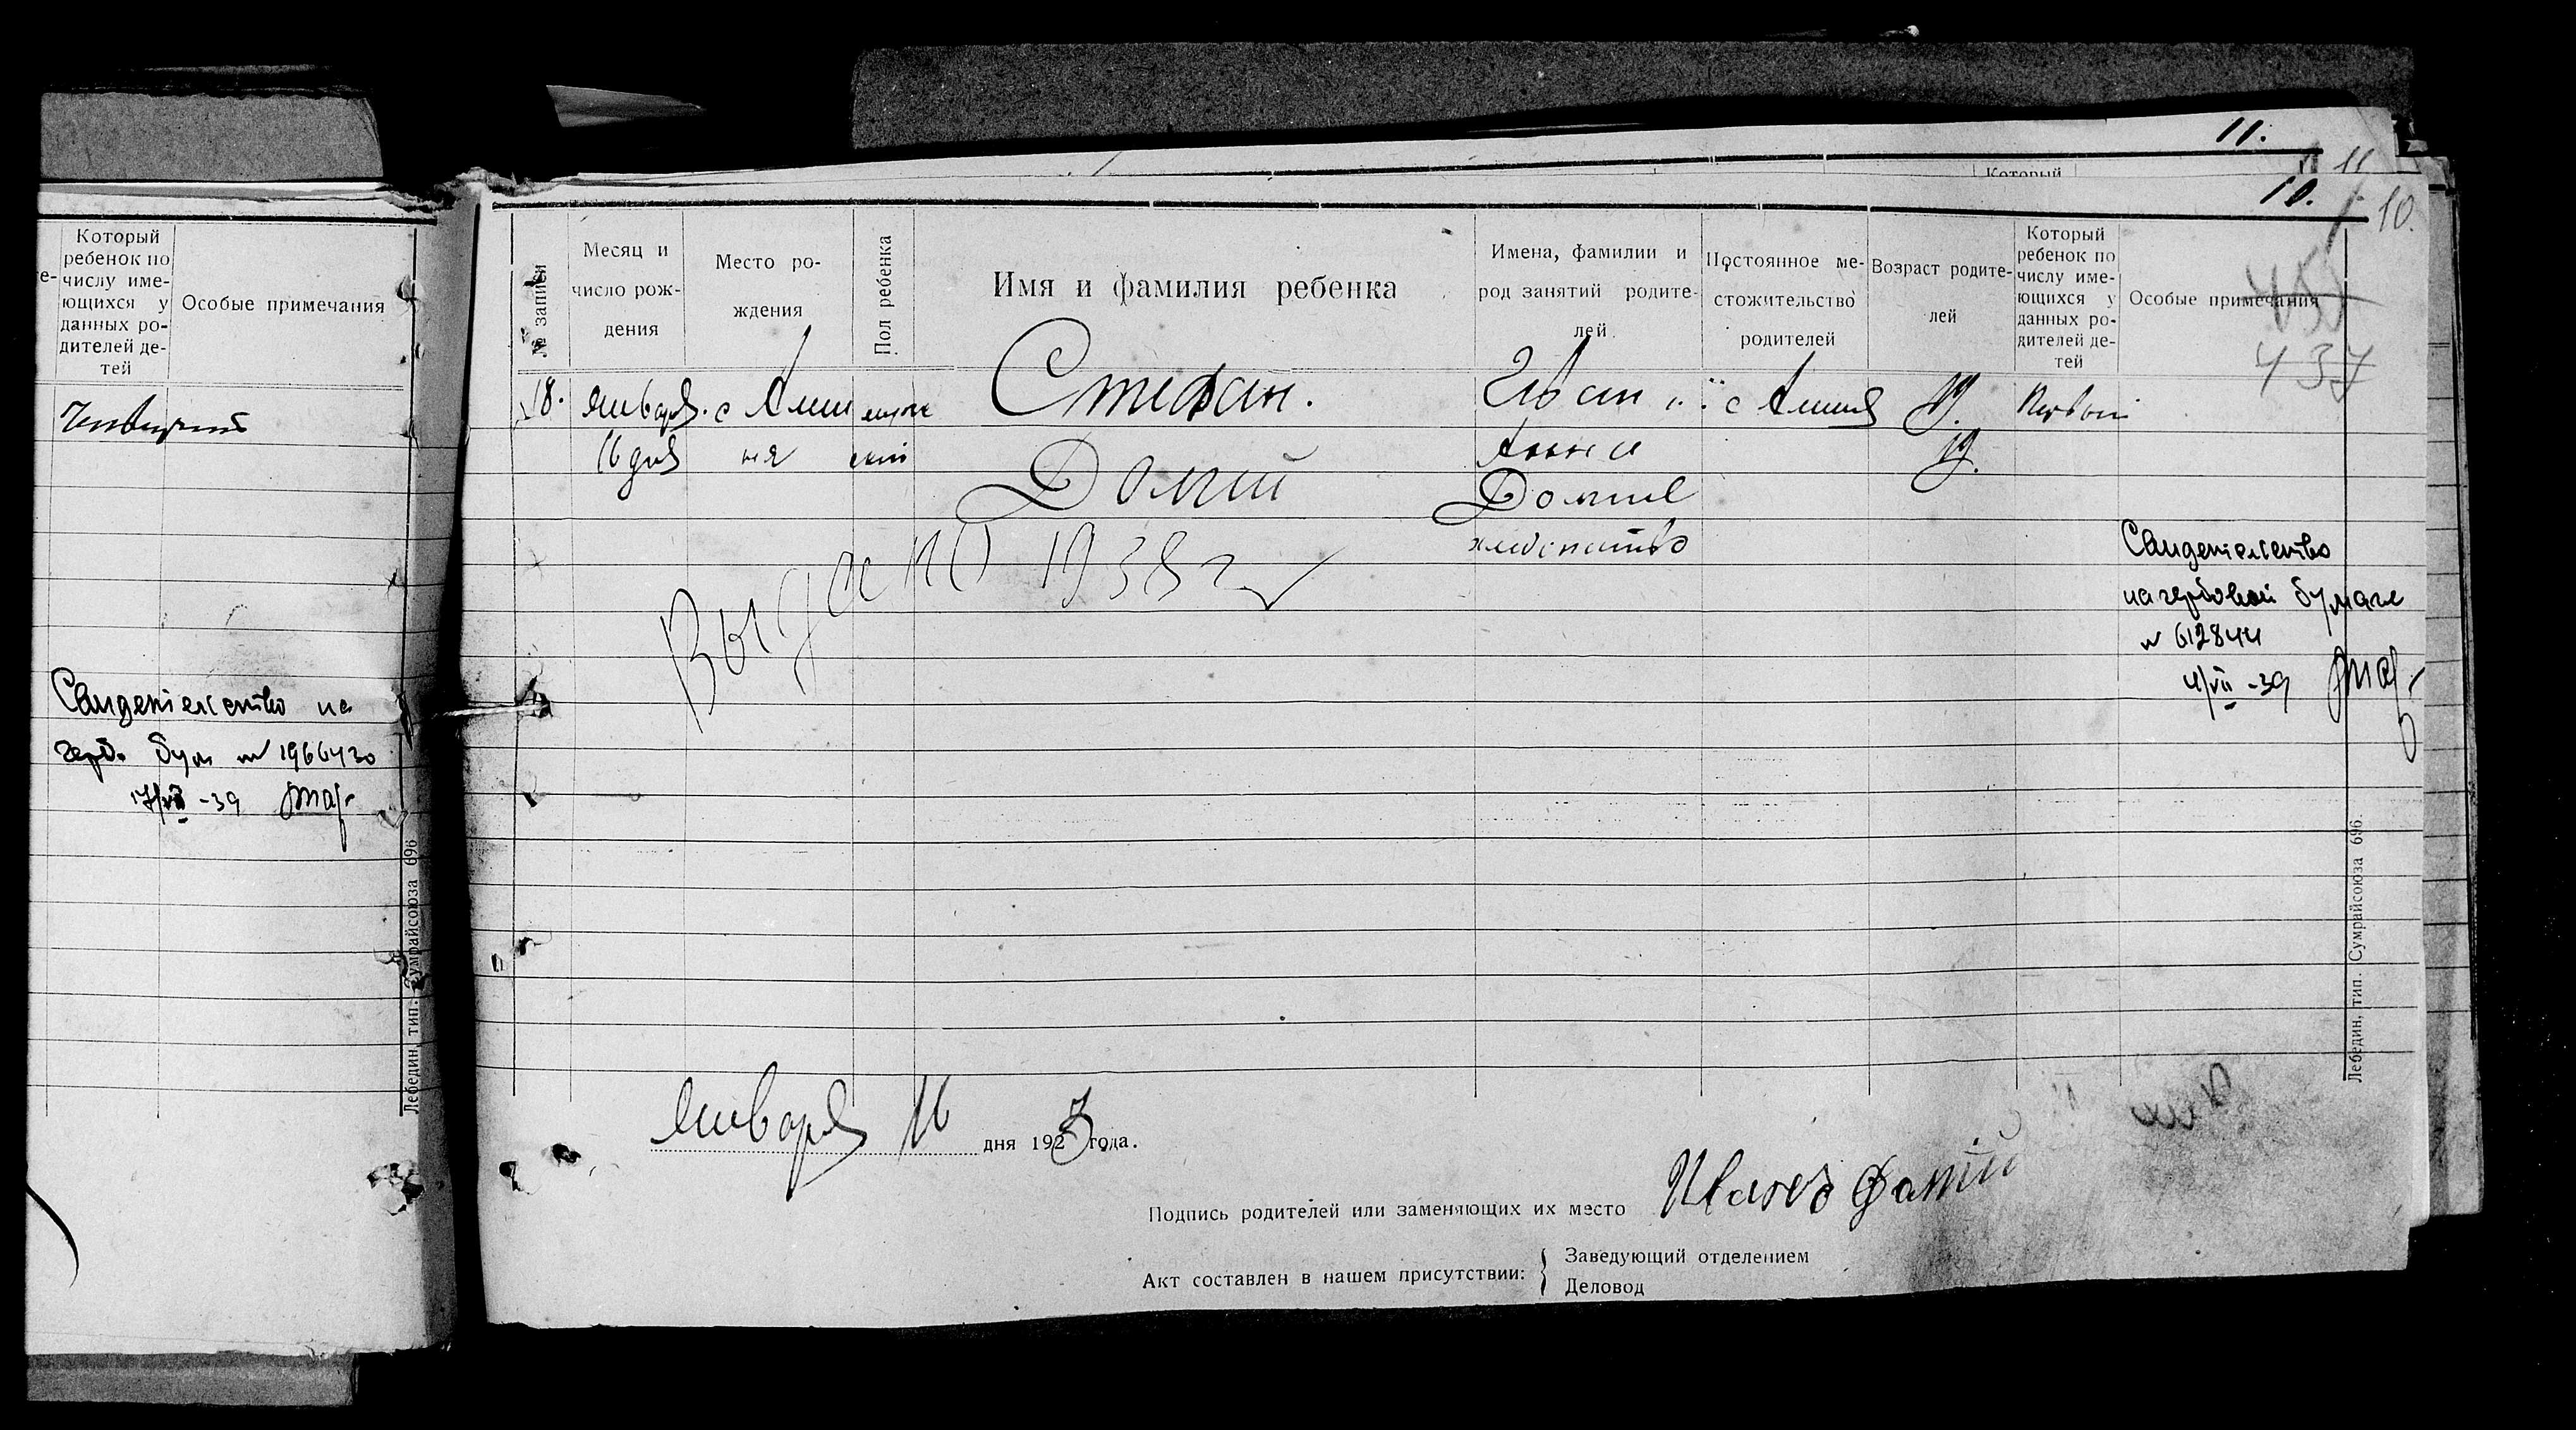 Который
ребенок по
числу име-
ющихся у
данных ро-
дителей де-
тей
Особые примечания
Свидетельство на
герб. бум № 1966430
17/VII -39
Лебедин, тип. Сумрайсоюза 696
11.
Который
11
10.
10.
№ записи
Месяц и
число рож-
дения
Место ро-
ждения
Пол ребенка
Имя и фамилия ребенка
Имена, фамилии и
род занятий родите-
лей
Постоянное ме-
стожительство
родителей
Возраст родите-
лей
Который
ребенок по
числу име-
ющихся у
данных ро-
дителей де-
тей
Особые примечания
457
437
18.
января
16 дня
с Алиш
ня
мужс
кий
Стефан.
Долгий
Иван и
Анна
Долгие
хлебопашество
19.
19.
Первый
Выдано 1938 г
Свидетельство
на гербовой бумаге
№ 612844
4/VII -39
Лебедин, тип. Сумрайсоюза 696.
Января 16 дня 1923 года.
Подпись родителей или заменяющих их место
Акт составлен в нашем присутствии:
Заведующий отделением
Деловод